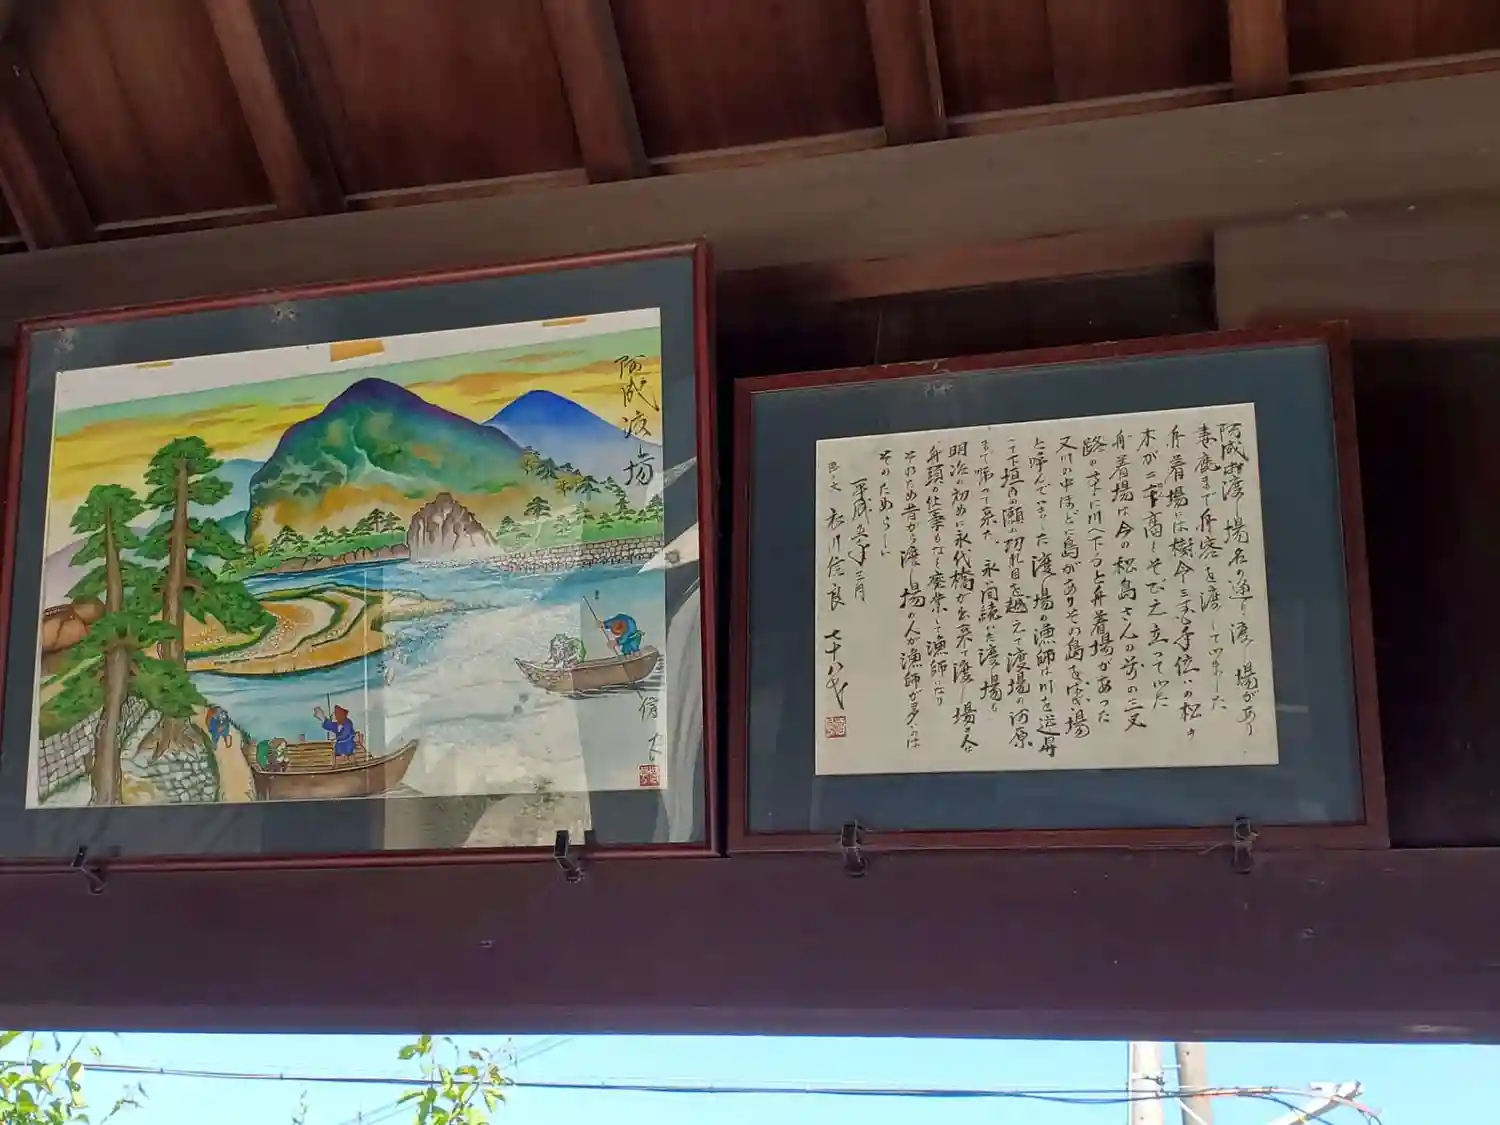 阿成渡場
阿成渡し場名の通り渡し場があり
妻鹿まで舟客を渡していました
舟着場には樹令三百年位の松の
木が二本高くそびえ立っていた
舟着場は今の松島さんの前の三叉
路の下に川へ下ると舟着場があった
又川の中ほどに島がありその島をゆば場
と呼んでいました渡し場の漁師は川を
下垣内の瀬の切れ目を越えて渡場の河原
まで帰って来た。永い間続いた渡し場も
明治の初めに永代橋が出来て渡し場の人は
舟頭の仕事もなく廃業して漁師になり
それため昔から渡し場の人が漁師が多いのは
そのためらしい
平成五年三月
衣川信良 七十八才